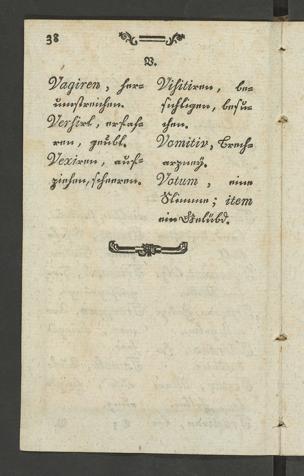 38
V.
Vagiren, her-
umstreichen.
Versirt, erfah-
ren, geübt.
Vexiren, auf-
ziehen, scheeren.
Visitiren, be-
sichtigen, besu-
chen.
Vomitiv, Brech-
arzney.
Votum, eine
Stimme; item
ein Gelübd.